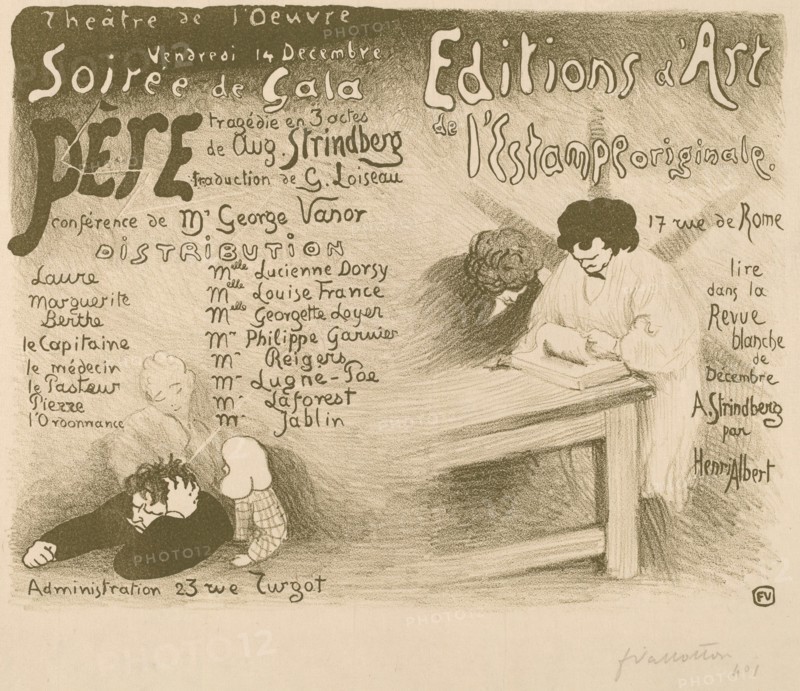 Théâtre de l'Oeuvre
Vendredi 14 Decembre
Soirée de Gala
PÈRE
tragédie en 3 actes
de Aug. Strindberg
traduction de G. Loiseau
conférence de Mr George Vanor
DISTRIBUTION
Laure Melle Lucienne Dorsy
Marguerite Melle Louise France
Berthe Melle Georgette Loyer
le Capitaine Mr Philippe Garnier
le médecin Mr Reigers
le Pasteur Mr Lugne-Poe
Pierre Mr Laforest
l'Ordonnance Mr Jablin
Administration 23 rue Turgot
Editions d'Art
de l'Estampe originale.
17 rue de Rome
lire
dans la
Revue
blanche
de
Decembre
A. Strindberg
par
Henri Albert
FV
f Vallotton
PHOTO12